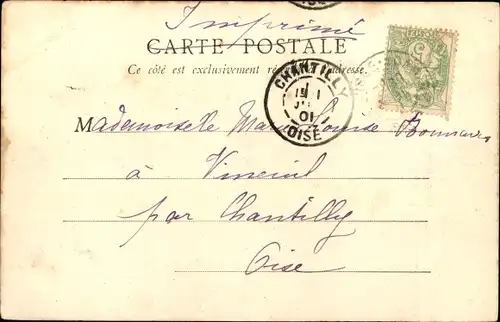 Imprimé
CARTE POSTALE
Ce côté est exclusivement réservé à l'adresse.
CHANTILLY
01
OISE
Mademoiselle Marie Louise
à Vineuil
par Chantilly
Oise